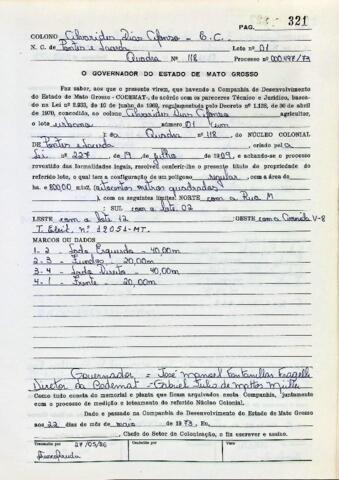 PAG. 321
COLONO Dias Afonso - C.C.
N. C. de Pontes e Lacerda Lote nº 01
Quadra nº 118 Processo nº 000497/73
O GOVERNADOR DO ESTADO DE MATO GROSSO
Faz saber, aos que a presente virem, que havendo a Companhia de Desenvolvimento
do Estado de Mato Grosso - CODEMAT, de acordo com os pareceres Técnico e Jurídico, baseados
na Lei nº 2.933, de 10 de junho de 1969, regulamentada pelo Decreto nº 1.138, de 20 de abril
de 1970, concedida, ao colono Dias Afonso agricultor,
o lote urbano número 01 (um
) da Quadra nº 118 do NÚCLEO COLONIAL
DE Pontes e Lacerda criado pela
Lei nº 227 de 9 de julho de 1909, e achando-se o processo
revestido das formalidades legais, resolveu conferir-lhe o presente título de propriedade do
referido lote, o qual tem a configuração de um polígono regular, com a área de
ha. e 800,00 m2 (oitocentos metros quadrados)
e com os seguintes limites: NORTE com a Rua M
SUL com o lote 02
LESTE com o lote 12 OESTE com a Avenida V-8
T. Eleit. nº 12051-MT.
MARCOS OU DADOS
1 - 2 - Lado Esquerdo - 40,00m
2 - 3 - Fundos - 20,00m
3 - 4 - Lado Direito - 40,00m
4 - 1 - Frente - 20,00m
Governador - José Manoel Fontanillas Fragelli
Diretor da Codemat - Gabriel Julio de Mattos Müller
Como tudo consta do memorial e planta que ficam arquivados nesta Companhia, juntamente
com o processo de medição e loteamento do referido Núcleo Colonial.
Dado e passado na Companhia de Desenvolvimento do Estado de Mato Grosso
aos 22 dias do mês de maio de 1973, Eu,
, Chefe do Setor de Colonização, o fiz escrever e assino.
27/05/86